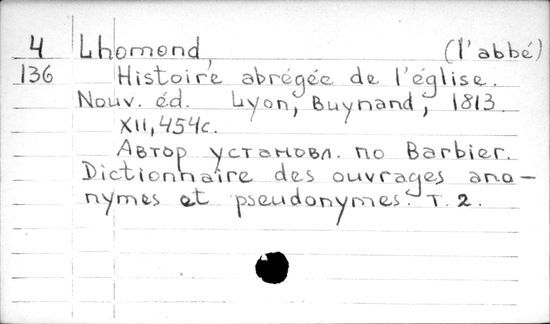 4 Lhomond, (l'abbé)
136 Histoire abrégée de l'église.
Nouv. éd. Lyon, Buynand, 1813.
XII, 454c.
Автор установл. по Barbier.
Dictionnaire des ouvrages ano-
nymes et pseudonymes. T. 2.